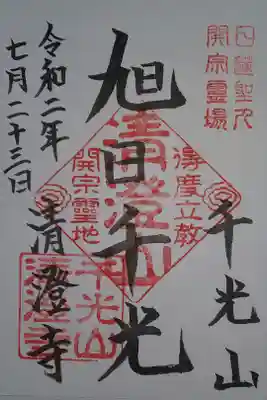 日蓮聖人
開宗霊場
千光山
旭日千光
清澄山
得度立教
開宗靈地
令和二年
七月二十三日
清澄寺
千光山
清澄寺